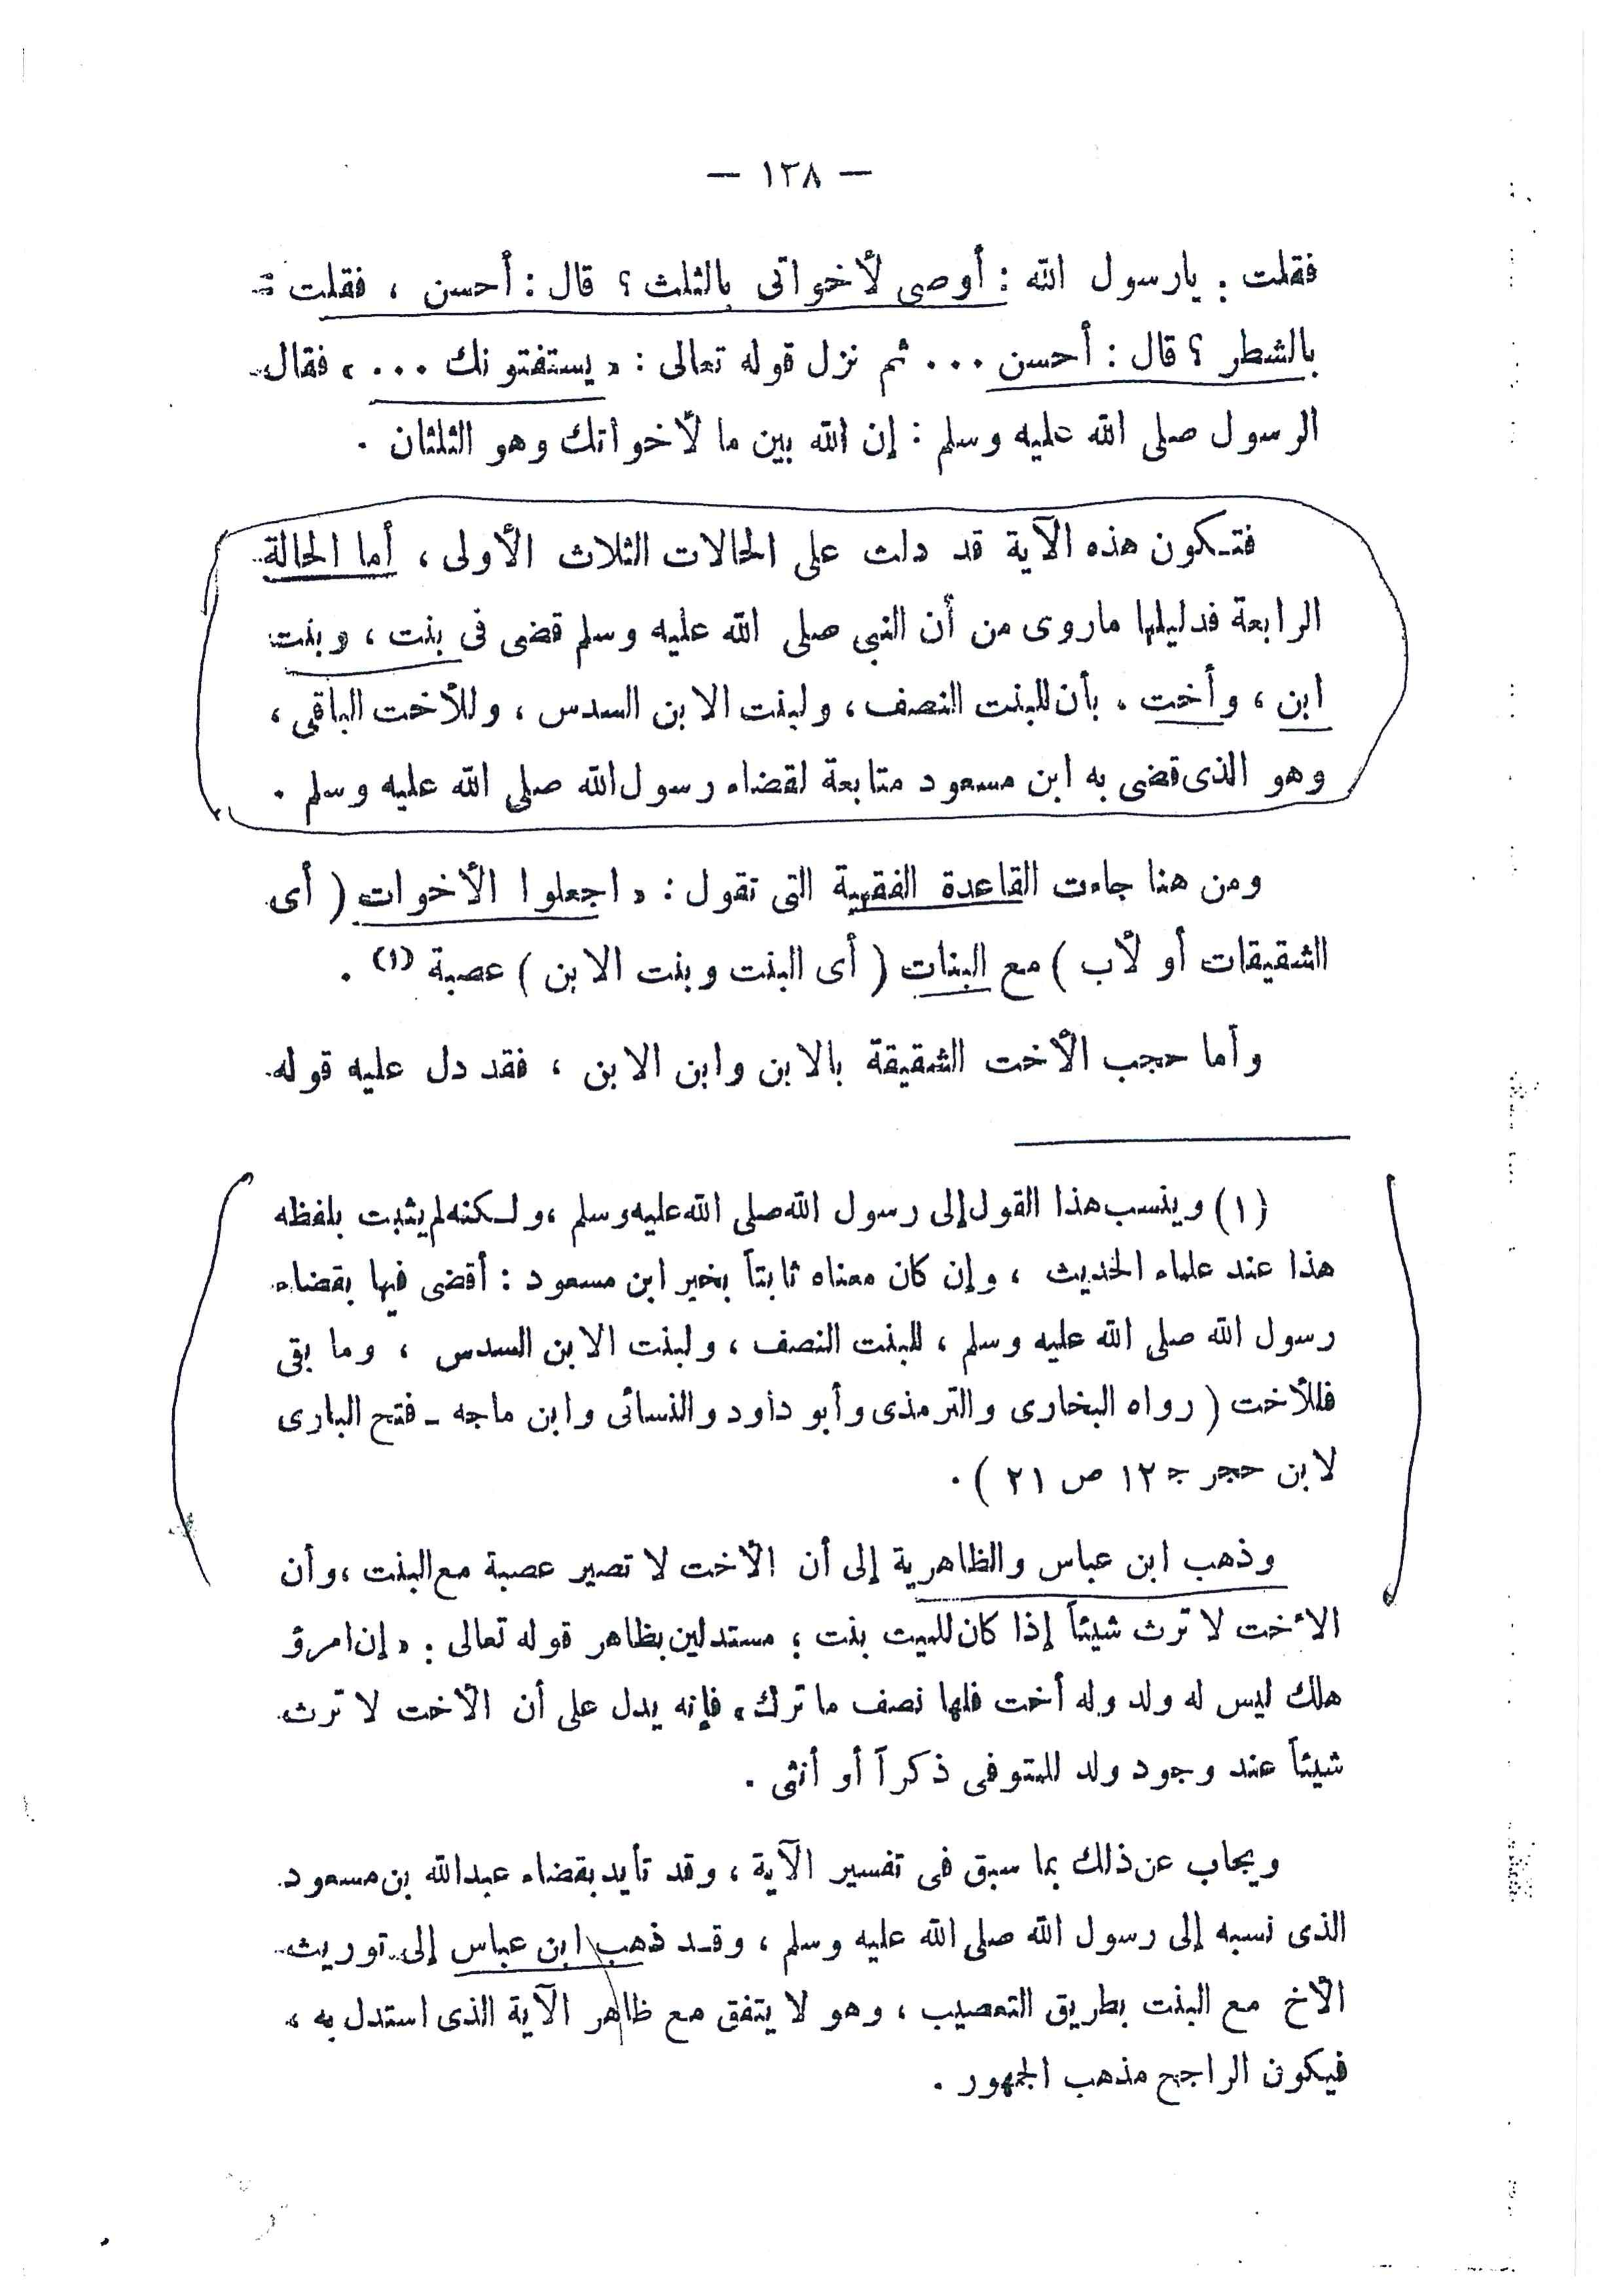 — ١٣٨ —
فقلت : يارسول الله : أوصى لأخواتى بالثلث ؟ قال : أحسن ، فقلت :
بالشطر ؟ قال : أحسن ... ثم نزل قوله تعالى : « يستفتونك ... » فقال
الرسول صلى الله عليه وسلم : إن الله بين ما لأخواتك وهو الثلثان .
فتكون هذه الآية قد دلت على الحالات الثلاث الأولى ، أما الحالة
الرابعة فدليلها ماروى من أن النبى صلى الله عليه وسلم قضى فى بنت ، وبنت
ابن ، وأخت . بأن للبنت النصف ، ولبنت الابن السدس ، وللأخت الباقى ،
وهو الذى قضى به ابن مسعود متابعة لقضاء رسول الله صلى الله عليه وسلم .
ومن هنا جاءت القاعدة الفقهية التى تقول : « اجعلوا الأخوات ( أى
الشقيقات أو لأب ) مع البنات ( أى البنت وبنت الابن ) عصبة (١) .
وأما حجب الأخت الشقيقة بالابن وابن الابن ، فقد دل عليه قوله
(١) وينسب هذا القول إلى رسول الله صلى الله عليه وسلم ، ولكنه لم يثبت بلفظه
هذا عند علماء الحديث ، وإن كان معناه ثابتاً بخبر ابن مسعود : أقضى فيها بقضاء
رسول الله صلى الله عليه وسلم ، للبنت النصف ، ولبنت الابن السدس ، وما بقى
فللأخت ( رواه البخارى والترمذى وأبو داود والنسائى وابن ماجه - فتح البارى
لابن حجر ج ١٢ ص ٢١ ) .
وذهب ابن عباس والظاهرية إلى أن الأخت لا تصير عصبة مع البنت ، وأن
الأخت لا ترث شيئاً إذا كان للميت بنت ؛ مستدلين بظاهر قوله تعالى : « إن امرؤ
هلك ليس له ولد وله أخت فلها نصف ما ترك » فإنه يدل على أن الأخت لا ترث
شيئاً عند وجود ولد للمتوفى ذكراً أو أنثى .
ويجاب عن ذلك بما سبق فى تفسير الآية ، وقد تأيد بقضاء عبدالله بن مسعود
الذى نسبه إلى رسول الله صلى الله عليه وسلم ، وقد ذهب ابن عباس إلى توريث
الأخ مع البنت بطريق التعصيب ، وهو لا يتفق مع ظاهر الآية الذى استدل به ،
فيكون الراجح مذهب الجمهور .